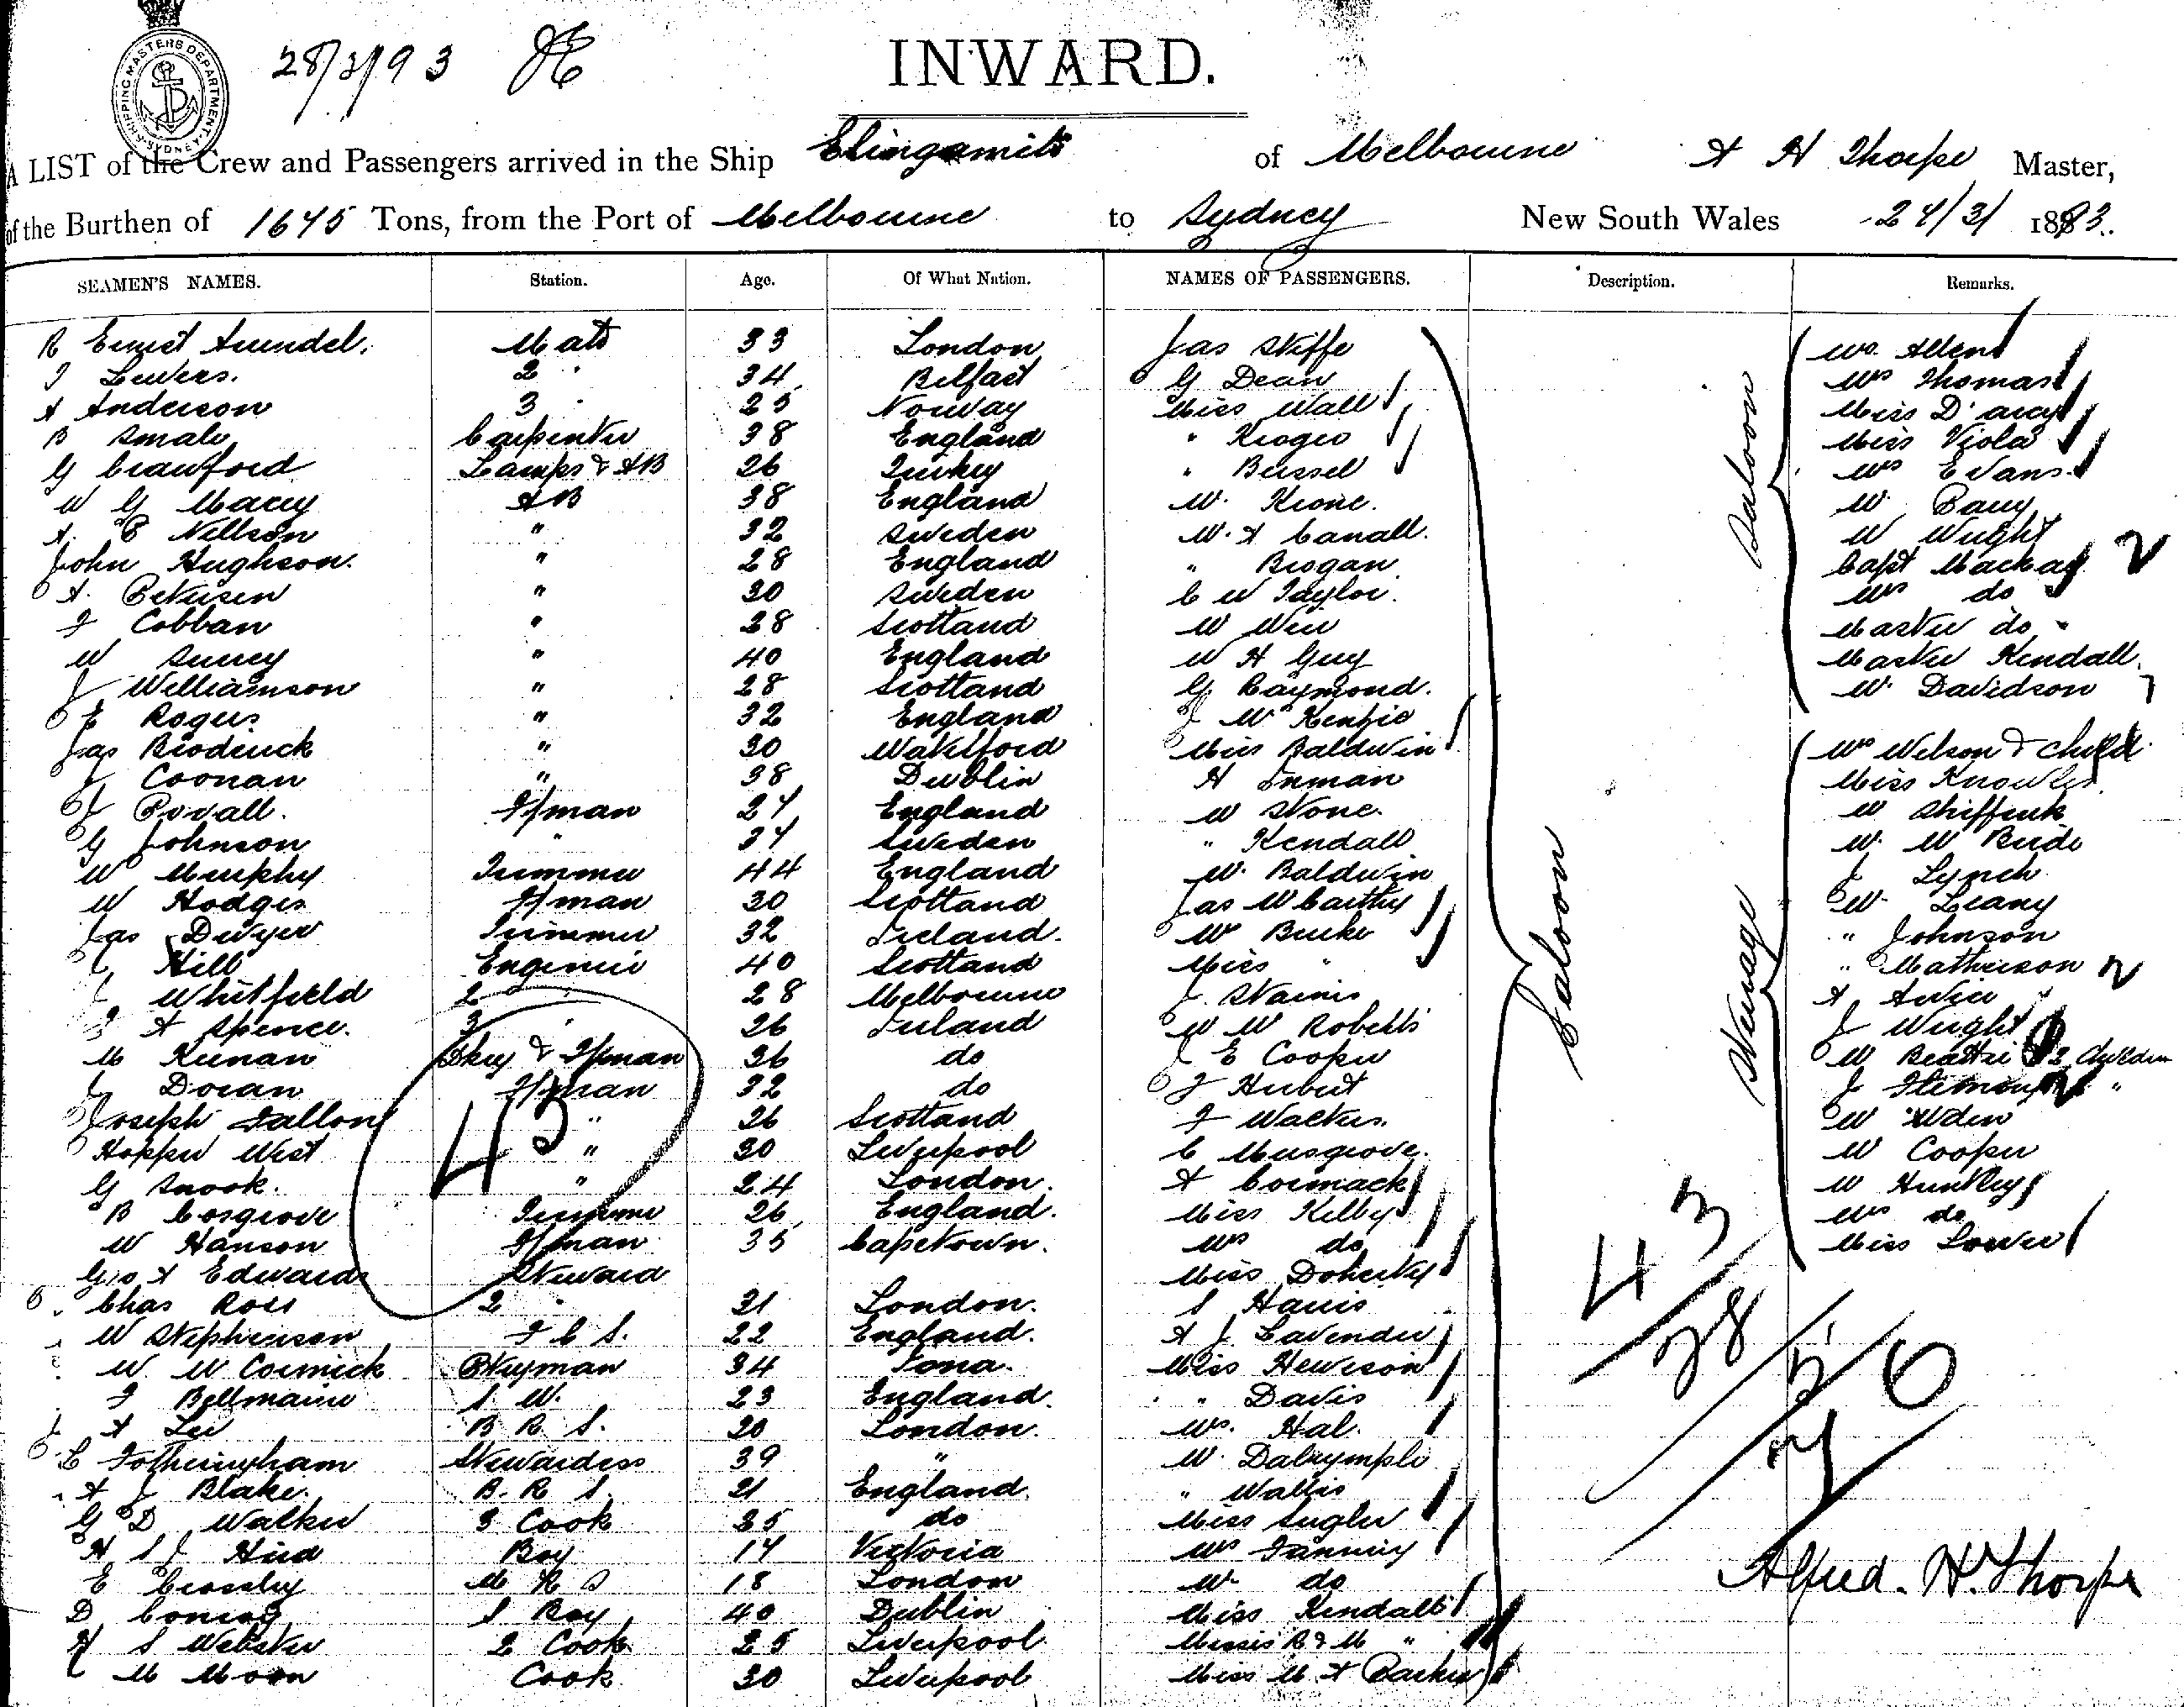 SHIPPING MASTERS DEPARTMENT SYDNEY
28/3/93
INWARD.
A LIST of the Crew and Passengers arrived in the Ship Elingamite of Melbourne A H Thorpe Master,
of the Burthen of 1675 Tons, from the Port of Melbourne to Sydney New South Wales 27/3/ 1893.
SEAMEN'S NAMES. Station. Age. Of What Nation. NAMES OF PASSENGERS. Description. Remarks.
R Ernest Arundel. Mate 33 London Jas Skiffe Mrs Allen
Lewers. 2 " 34 Belfast G Dean Mrs Thomas
A Anderson 3 " 25 Norway Miss Wall Miss D'arcy
B Smale Carpenter 38 England " Miss Viola
G Crawford Lamps & AB 26 Turkey " Bussel Mrs Evans
W G Macey AB 38 England Mr Krone. Mr
A. E Nellson " 32 Sweden Mr A Canall. Mr Wright
John Hughson. " 28 England " Brogan Capt Mackay 2
A. Petersen " 30 Sweden C W Taylor. Mrs do
Cobban " 28 Scotland W Weir Master do
W Surrey " 40 England W H Guy Master Kendall
J Williamson " 28 Scotland G Raymond. Mr Davidson
E Rogers " 32 England J McKenzie
Jas Broderick " 30 Waterford Miss Baldwin Mrs Wilson & child
J Coonan " 38 Dublin H Inman Miss Knowles
J Povall. F/man 27 England W Stone.
G Johnson " 37 Sweden " Kendall Mr
W Murphy Trimmer 44 England Mr Baldwin J Lynch
W Hodges F/man 30 Scotland Jas McCarthy Mr Leany
Jas Dwyer Trimmer 32 Ireland. Mr Burke " Johnson
Hill Engineer 40 Scotland Miss " " Mathieson
Whitfield 2 28 Melbourne J. A
A Spence. 3 " 26 Ireland W W Roberts J Wright
M Keenan & F/man 36 do J E Cooper Mr Beattie & 2 Children
J Doran F/man 32 do J Hubert J "
Joseph Fallon " 26 Scotland Walker. Mr
Hopper West " 30 Liverpool C Musgrove. Mr Cooper
G Snook. " 24 London. A Cormack Mr Huntley
B Cosgrove Trimmer 26 England. Miss Kelby Mrs do
W Hanson F/man 35 Capetown. Mrs do Miss Lower
Geo A Edwards Steward Miss Doherty
Chas Ross 2 " 31 London. S Harris
W Stephenson F C S. 22 England. A J Lavender
W McCormick P/tryman 34 Iona. Miss Hewison
S. W. 23 England. " Davis
A Lee B R S. 20 London. Mrs. Hal.
Fotheringham Stewardess 39 " Mr Dalrymple
A J Blake. B. R S. 21 England. " Wallis
G D Walker 3 Cook 35 do Miss
H S J Hird Boy 17 Victoria Mrs Fanning
E Crossley M R S 18 London Mr do
D S Boy 40 Dublin Miss Kendall
H S Webster 2 Cook 25 Liverpool Misses R & M "
M Moon Cook 30 Liverpool Miss M A Parker
Saloon
Saloon
Steerage
43
43
Alfred. H. Thorpe